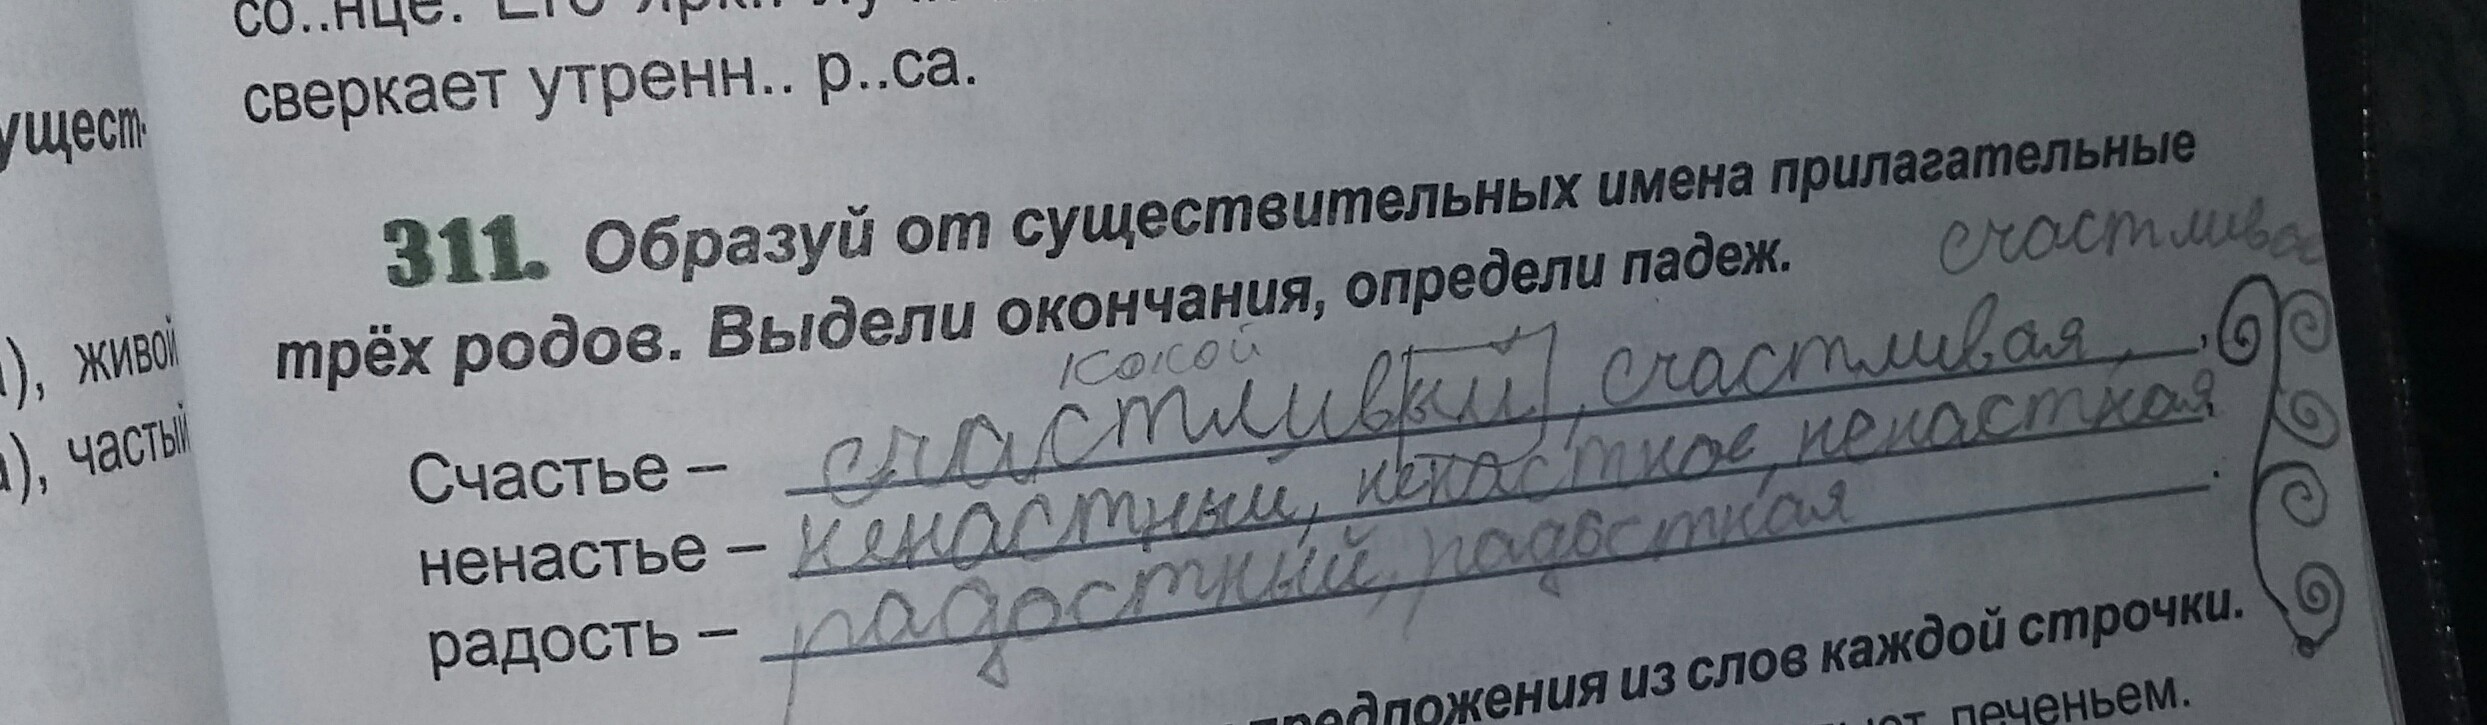 со..нце. Его ярк..
сверкает утренн.. р..са.
ущест-
311. Образуй от существительных имена прилагательные
счастливое
трёх родов. Выдели окончания, определи падеж.
), живой
кокой
Счастье – счастливый, счастливая,
), частый
ненастье – ненастный, ненастное, ненастная.
радость – радостный, радостная .
предложения из слов каждой строчки.
печеньем.